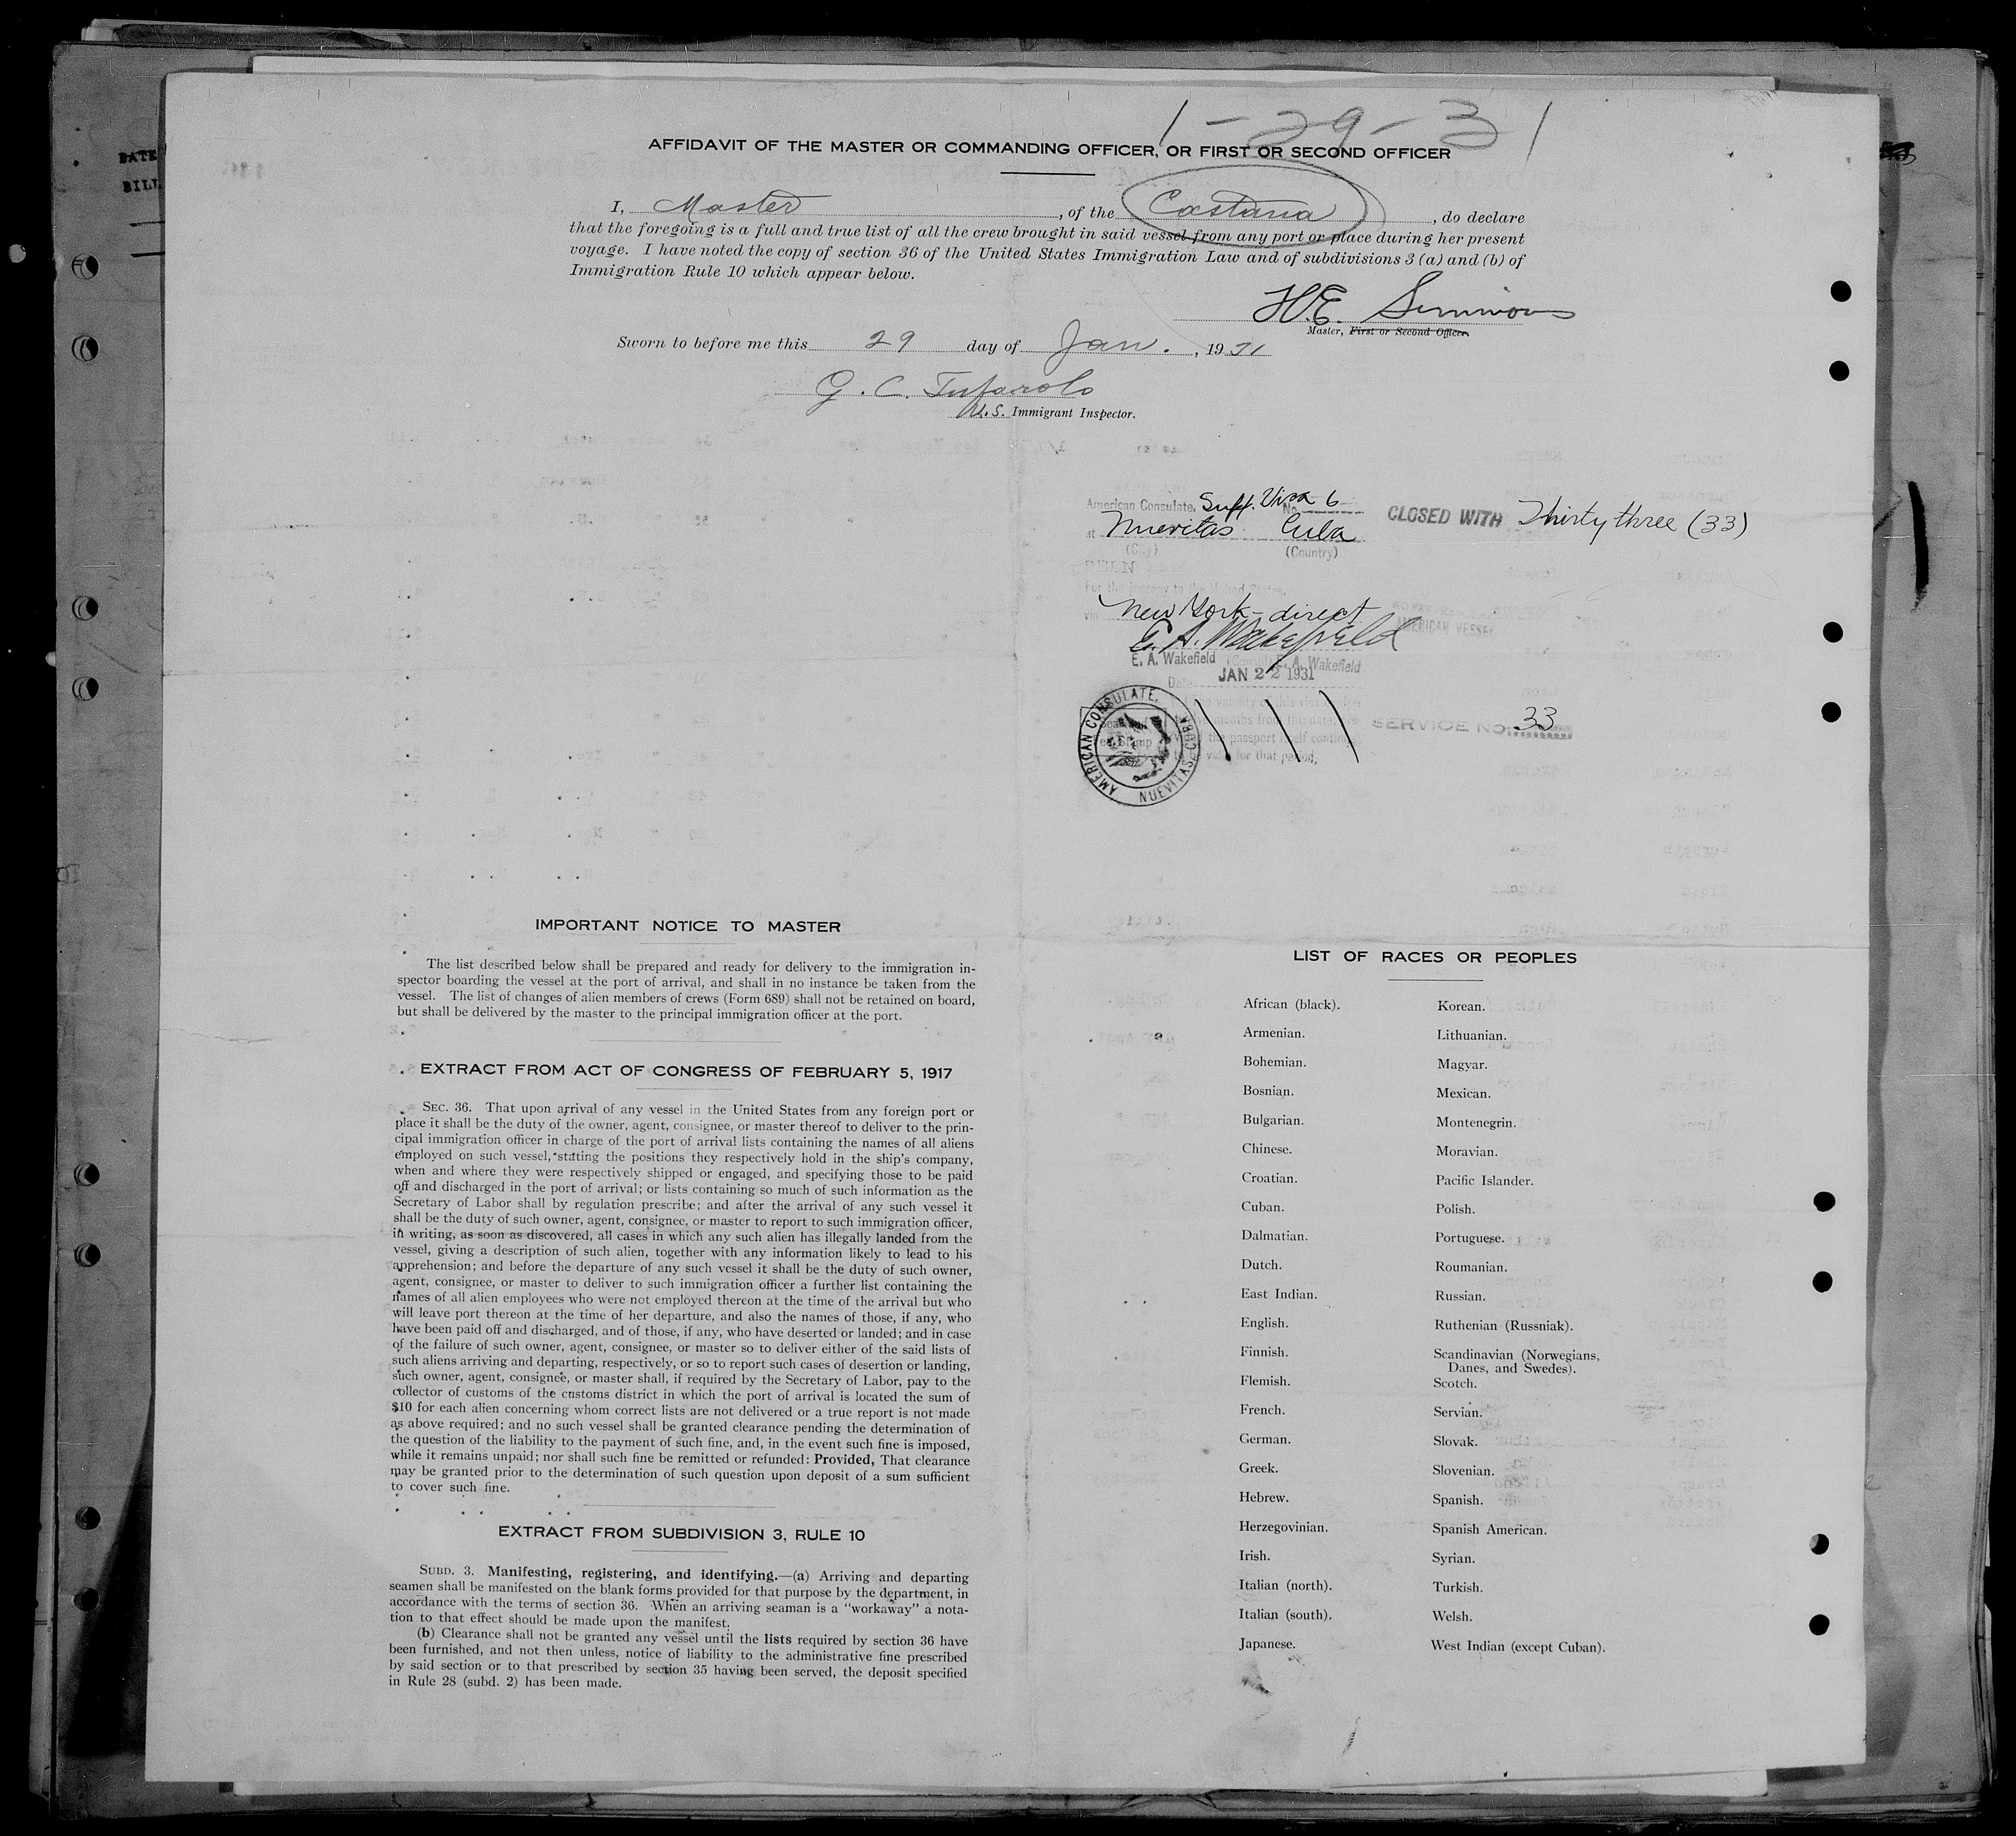 1-29-31
DATE
BILL
AFFIDAVIT OF THE MASTER OR COMMANDING OFFICER, OR FIRST OR SECOND OFFICER
I, Master, of the Castana, do declare
that the foregoing is a full and true list of all the crew brought in said vessel from any port or place during her present
voyage. I have noted the copy of section 36 of the United States Immigration Law and of subdivisions 3 (a) and (b) of
Immigration Rule 10 which appear below.
H.E. Simmons
Master, First or Second Officer.
Sworn to before me this 29 day of Jan., 1931
G. C. Tufarolo
U.S. Immigrant Inspector.
American Consulate, Supp. Visa No. 6
at Nuevitas Cuba
(City) (Country)
CLOSED WITH Thirty three (33)
SEEN
For the journey to the United States,
via New York - direct
AMERICAN VESSEL
E. A. Wakefield
E. A. Wakefield E. A. Wakefield
Date JAN 22 1931
validity of this
months from this date,
the passport itself continues
valid for that period.
AMERICAN CONSULATE, NUEVITAS, CUBA
SERVICE NO. 33
IMPORTANT NOTICE TO MASTER
The list described below shall be prepared and ready for delivery to the immigration in-
spector boarding the vessel at the port of arrival, and shall in no instance be taken from the
vessel. The list of changes of alien members of crews (Form 689) shall not be retained on board,
but shall be delivered by the master to the principal immigration officer at the port.
EXTRACT FROM ACT OF CONGRESS OF FEBRUARY 5, 1917
SEC. 36. That upon arrival of any vessel in the United States from any foreign port or
place it shall be the duty of the owner, agent, consignee, or master thereof to deliver to the prin-
cipal immigration officer in charge of the port of arrival lists containing the names of all aliens
employed on such vessel, stating the positions they respectively hold in the ship's company,
when and where they were respectively shipped or engaged, and specifying those to be paid
off and discharged in the port of arrival; or lists containing so much of such information as the
Secretary of Labor shall by regulation prescribe; and after the arrival of any such vessel it
shall be the duty of such owner, agent, consignee, or master to report to such immigration officer,
in writing, as soon as discovered, all cases in which any such alien has illegally landed from the
vessel, giving a description of such alien, together with any information likely to lead to his
apprehension; and before the departure of any such vessel it shall be the duty of such owner,
agent, consignee, or master to deliver to such immigration officer a further list containing the
names of all alien employees who were not employed thereon at the time of the arrival but who
will leave port thereon at the time of her departure, and also the names of those, if any, who
have been paid off and discharged, and of those, if any, who have deserted or landed; and in case
of the failure of such owner, agent, consignee, or master so to deliver either of the said lists of
such aliens arriving and departing, respectively, or so to report such cases of desertion or landing,
such owner, agent, consignee, or master shall, if required by the Secretary of Labor, pay to the
collector of customs of the customs district in which the port of arrival is located the sum of
$10 for each alien concerning whom correct lists are not delivered or a true report is not made
as above required; and no such vessel shall be granted clearance pending the determination of
the question of the liability to the payment of such fine, and, in the event such fine is imposed,
while it remains unpaid; nor shall such fine be remitted or refunded: Provided, That clearance
may be granted prior to the determination of such question upon deposit of a sum sufficient
to cover such fine.
EXTRACT FROM SUBDIVISION 3, RULE 10
SUBD. 3. Manifesting, registering, and identifying.—(a) Arriving and departing
seamen shall be manifested on the blank forms provided for that purpose by the department, in
accordance with the terms of section 36. When an arriving seaman is a "workaway" a nota-
tion to that effect should be made upon the manifest.
(b) Clearance shall not be granted any vessel until the lists required by section 36 have
been furnished, and not then unless, notice of liability to the administrative fine prescribed
by said section or to that prescribed by section 35 having been served, the deposit specified
in Rule 28 (subd. 2) has been made.
LIST OF RACES OR PEOPLES
African (black).
Armenian.
Bohemian.
Bosnian.
Bulgarian.
Chinese.
Croatian.
Cuban.
Dalmatian.
Dutch.
East Indian.
English.
Finnish.
Flemish.
French.
German.
Greek.
Hebrew.
Herzegovinian.
Irish.
Italian (north).
Italian (south).
Japanese.
Korean.
Lithuanian.
Magyar.
Mexican.
Montenegrin.
Moravian.
Pacific Islander.
Polish.
Portuguese.
Roumanian.
Russian.
Ruthenian (Russniak).
Scandinavian (Norwegians,
Danes, and Swedes).
Scotch.
Servian.
Slovak.
Slovenian.
Spanish.
Spanish American.
Syrian.
Turkish.
Welsh.
West Indian (except Cuban).